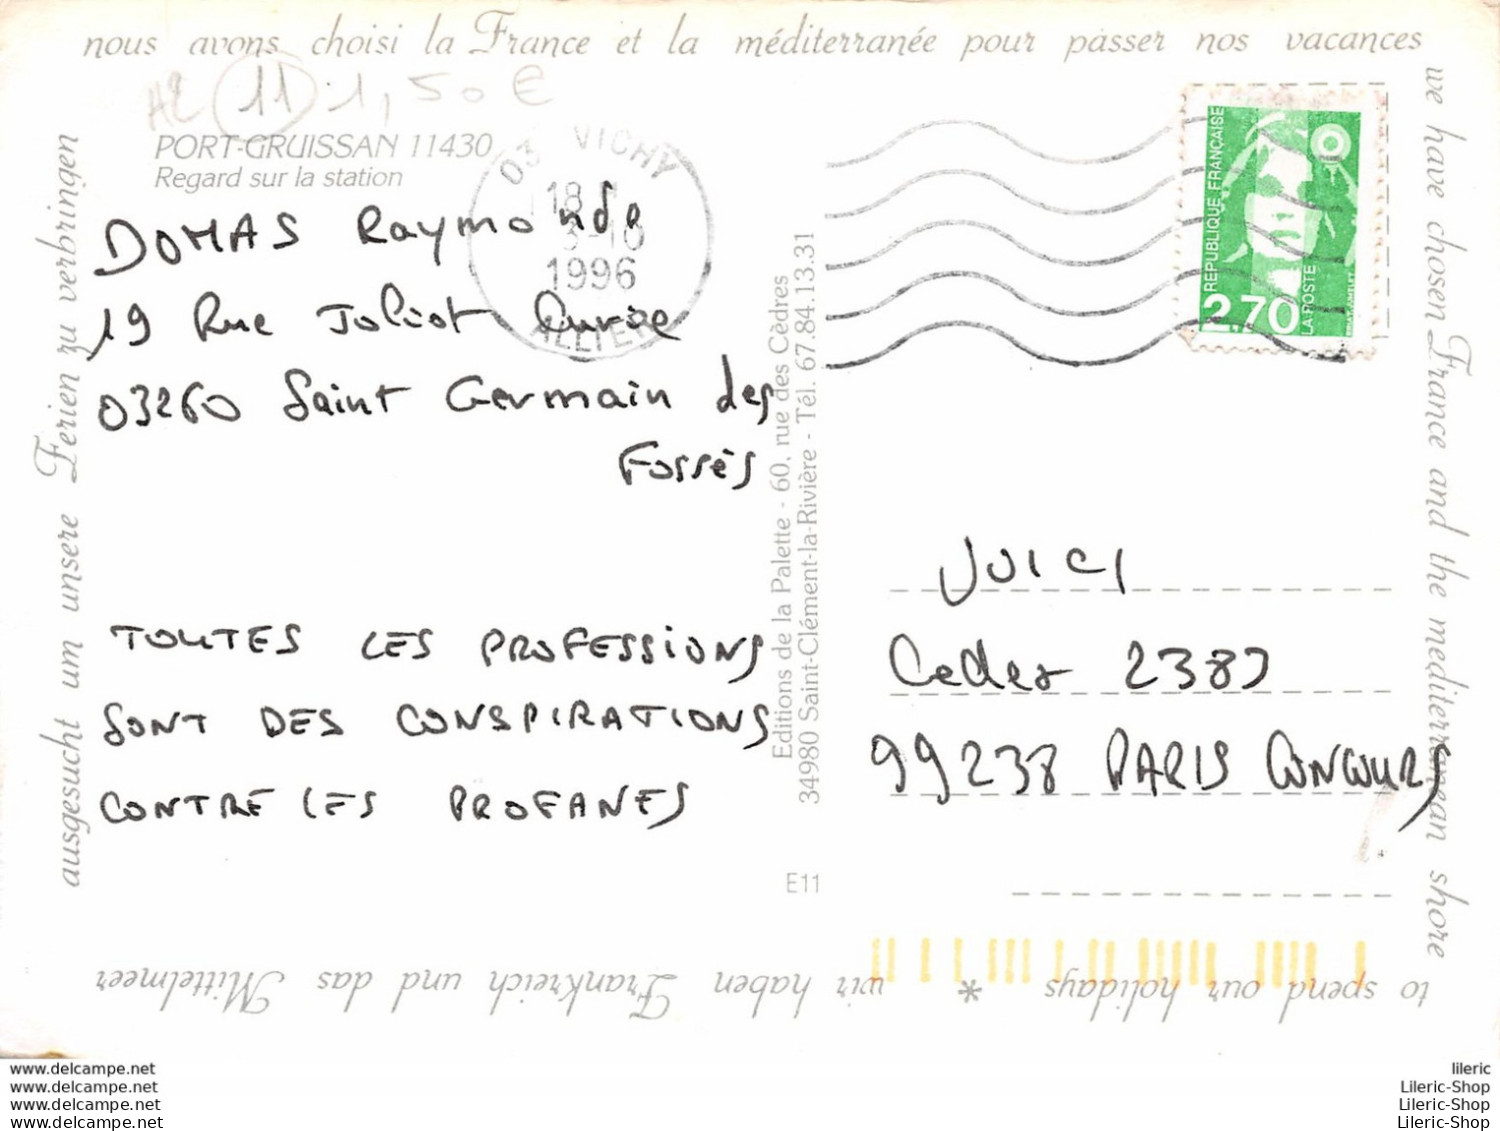 nous avons choisi la France et la méditerranée pour passer nos vacances
we have chosen France and the mediterranean shore
to spend our holidays * wir haben Frankreich und das Mittelmeer
ausgesucht um unsere Ferien zu verbringen
A2 11 1,50 €
PORT-GRUISSAN 11430
Regard sur la station
03 VICHY
18
3-10
1996
ALLIER
REPUBLIQUE FRANÇAISE
LA POSTE
2,70
DOMAS Raymonde
19 Rue Joliot Curie
03260 Saint Germain des
Fossés
TOUTES LES PROFESSIONS
SONT DES CONSPIRATIONS
CONTRE LES PROFANES
Editions de la Palette - 60, rue des Cèdres
34980 Saint-Clément-la-Rivière - Tél. 67.84.13.31
E11
JUICI
Cedex 2383
99238 PARIS CONCOURS
www.delcampe.net
www.delcampe.net
www.delcampe.net
www.delcampe.net
lileric
Lileric-Shop
Lileric-Shop
Lileric-Shop